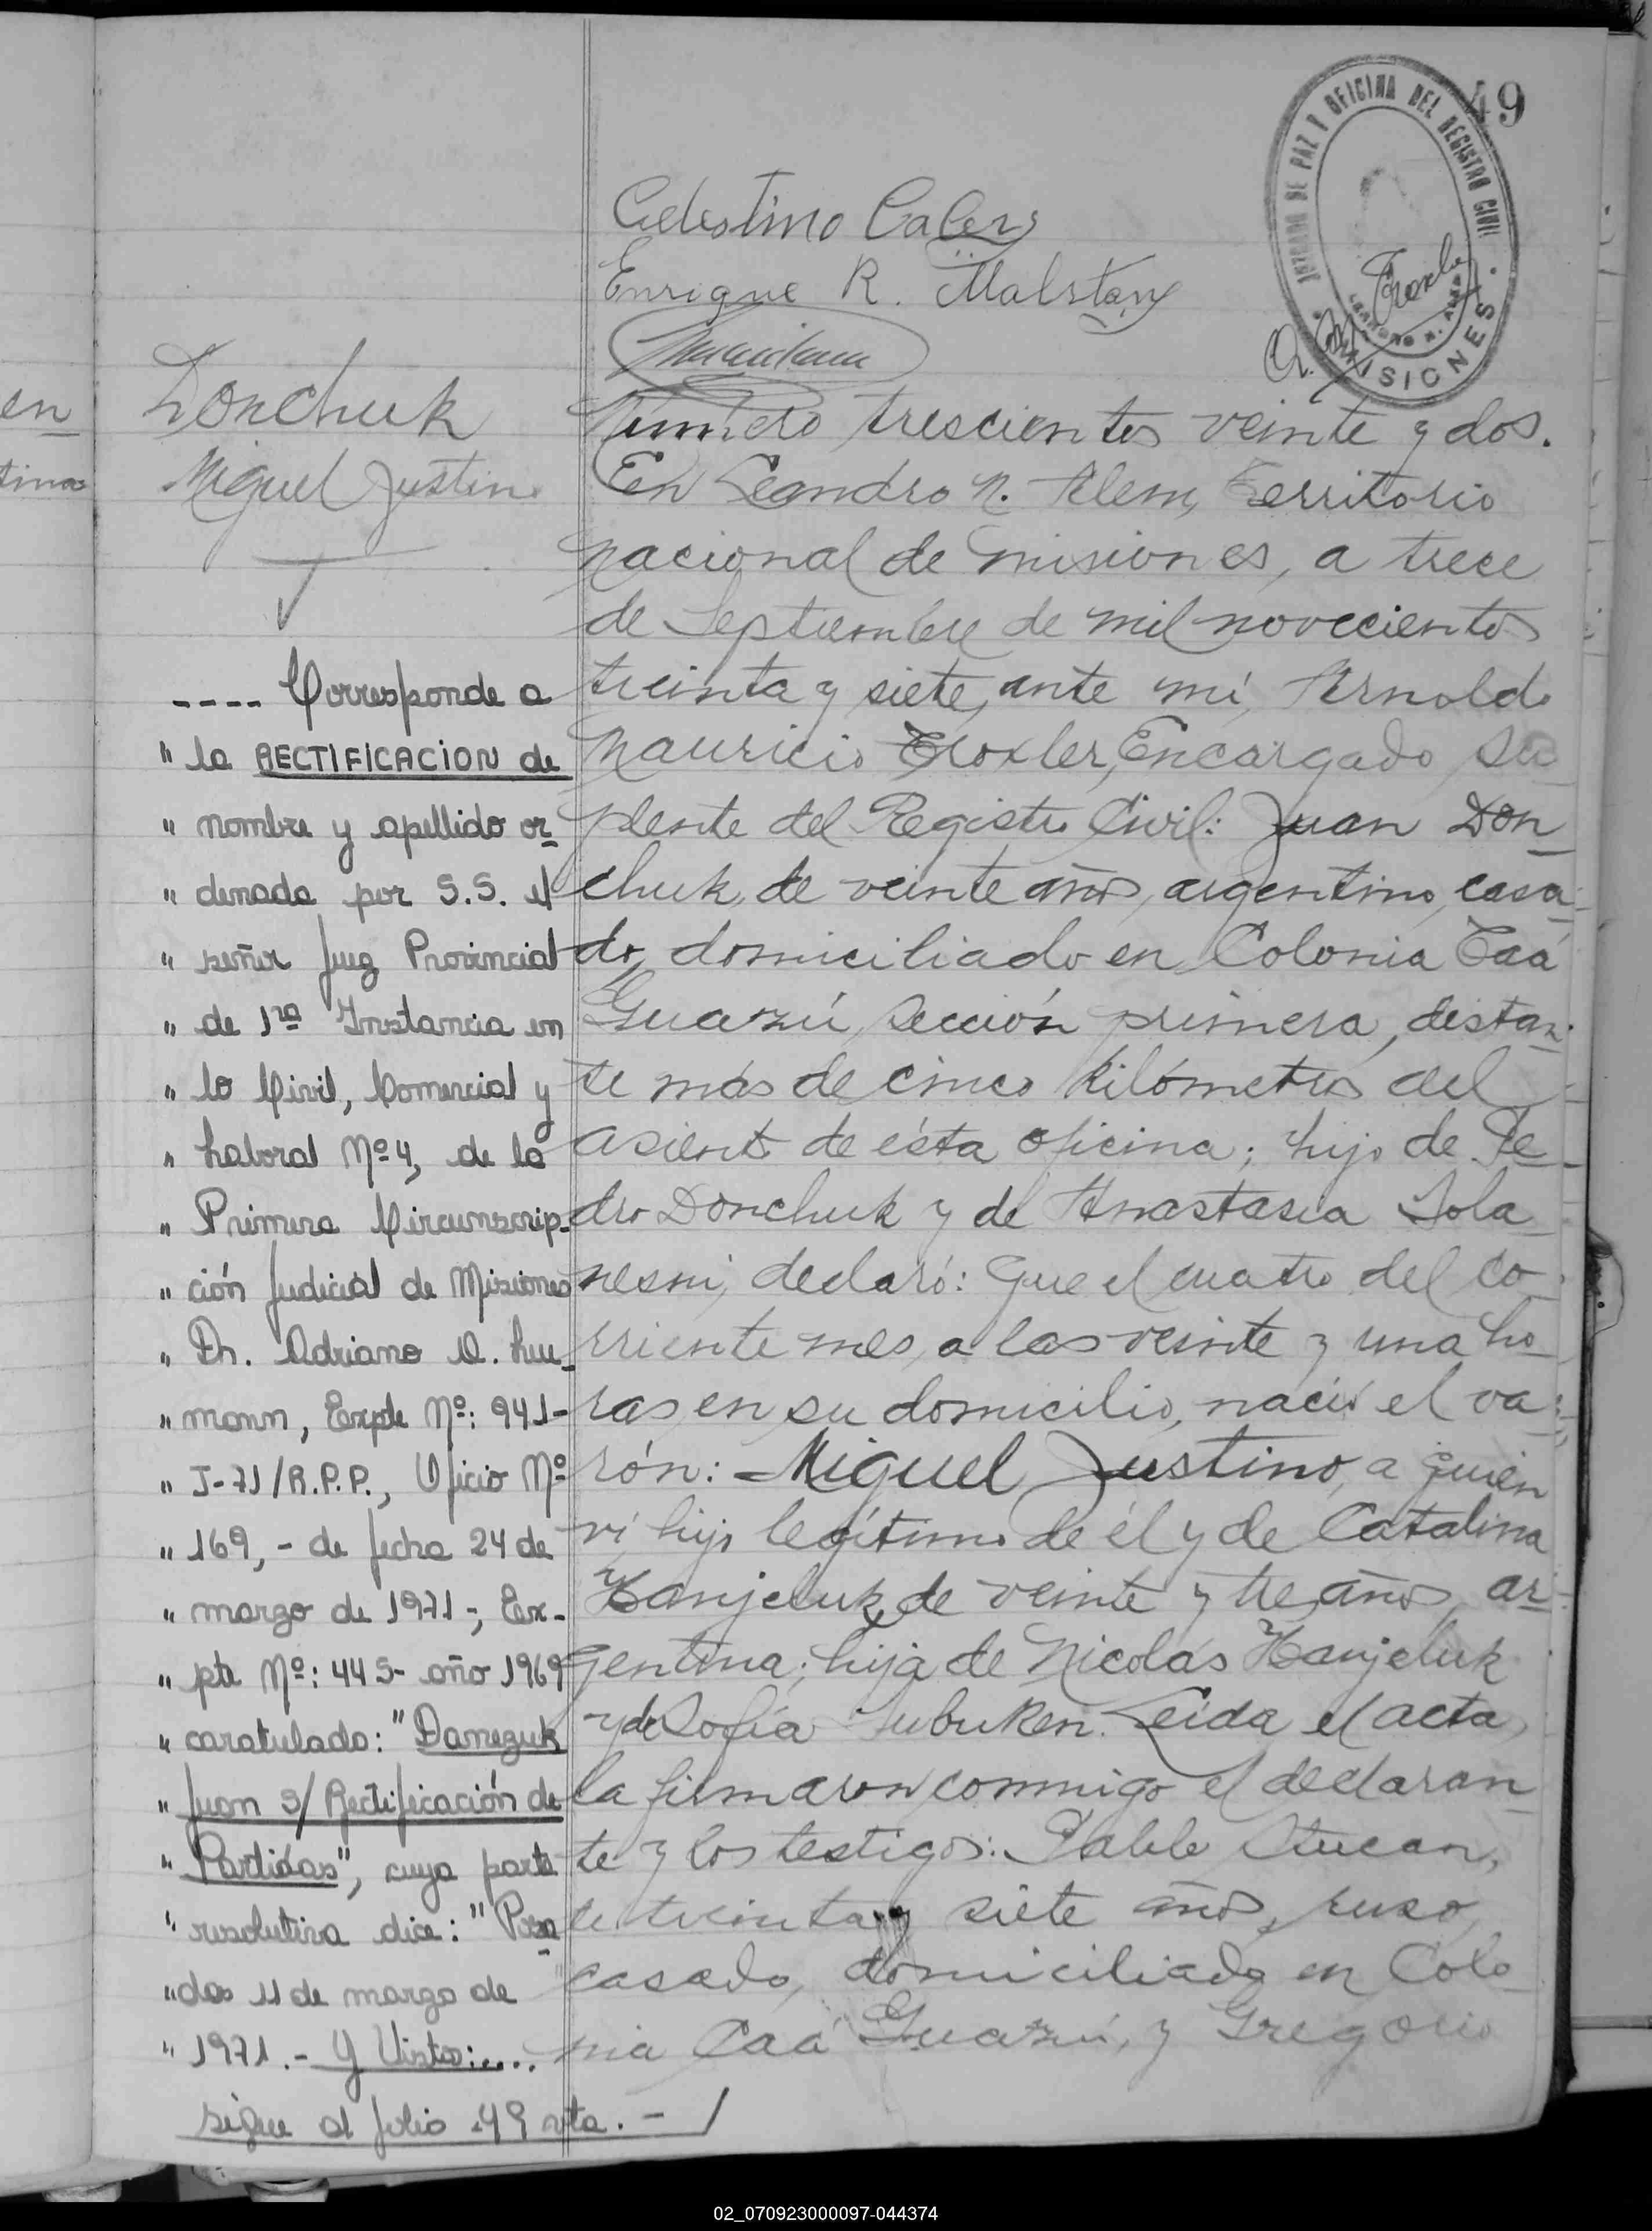 49
JUZGADO DE PAZ Y OFICINA DEL REGISTRO CIVIL
LEANDRO N. ALEM
MISIONES.
Celestino
Enrique R.
Donchuk
Miguel Justino
Número trescientos veinte y dos.
En Leandro N. Alem, Territorio
nacional de Misiones, a trece
de Septiembre de mil novecientos
treinta y siete, ante mí, Arnoldo
Mauricio Troxler, Encargado Su
plente del Registro Civil: Juan Don
chuk, de veinte años, argentino, casa-
do, domiciliado en Colonia Caá
Guazú, sección primera, distan-
te más de cinco kilómetros del
asiento de ésta oficina; hijo de Pe
dro Donchuk y de Anastasia Sola
nesni, declaró: Que el cuatro del co-
rriente mes, a las veinte y una ho
ras, en su domicilio, nació el va-
rón: Miguel Justino, a quien
ví, hijo legítimo de él y de Catalina
Hanjeluk, de veinte y tres años, ar-
gentina; hija de Nicolás Hanjeluk
y de Sofía. Leída el acta,
la firmaron conmigo el declaran
te y los testigos:
de treinta y siete años, ruso,
casado, domiciliado en Colo
nia Caá Guazú, y Gregorio
---- Corresponde a
" la RECTIFICACION de
" nombre y apellido or
" denada por S.S. el
" señor Juez Provincial
" de 1ra Instancia en
" lo Civil, Comercial y
" Laboral Nº4, de la
" Primera Circunscrip-
" ción Judicial de Misiones
" Dr. Adriano O. Lu
" mann, Expte Nº: 941-
" J-71/R.P.P., Oficio Nº
" 169,- de fecha 24 de
" marzo de 1971-; Ex-
" pte Nº: 445- año 1969
" caratulado: "Danezuk
" Juan S/ Rectificación de
" Partidas", cuya parte
" resolutiva dice: "Posa
" das 11 de marzo de
" 1971.- Y Vistos:....
sigue al folio 49 vta. -
02_070923000097-044374